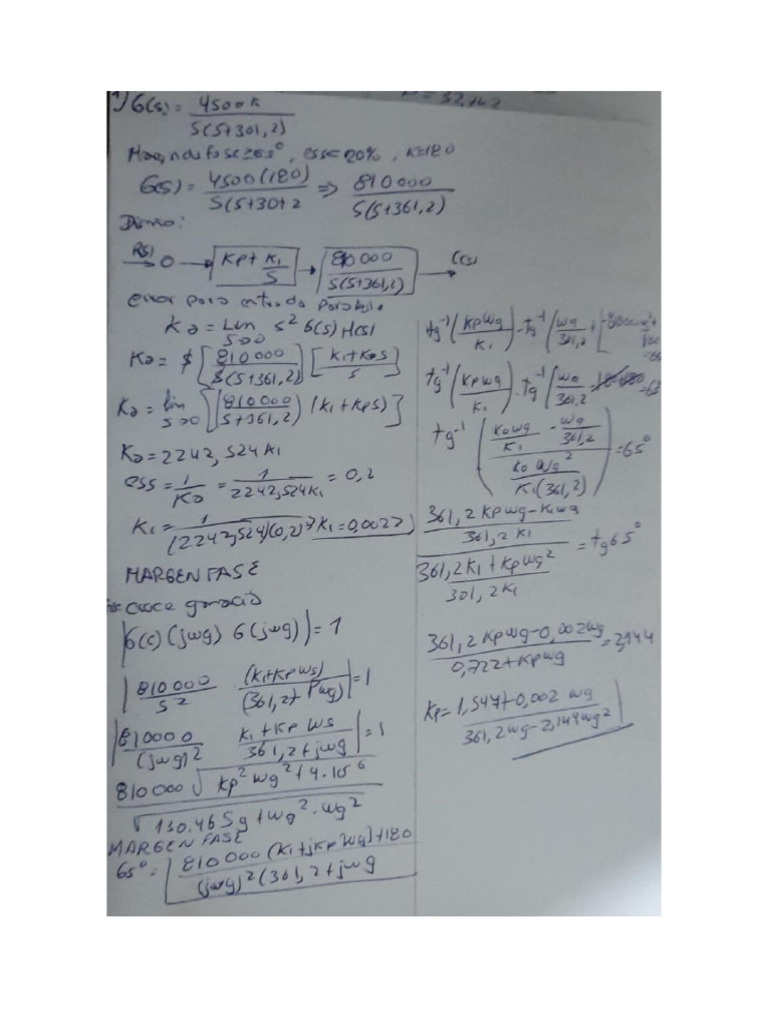 1) G(s) = 4500K / S(S+301,2)
Margen de fase ≥65°, ess= 20%, K=180
G(s) = 4500(180) / S(S+30+2 ⇒ 810000 / S(S+361,2)
R(s) → O → Kp + K1/S → 810000 / S(S+361,2) → C(s)
error para entrada parabolica
Ka = Lim S→0 S² G(s) H(s)
Ka = $ [810000 / S(S+361,2)] [K1+KpS / S]
Ka = lim S→0 [(810000 / S+361,2) (K1+KpS)]
Ka = 2242,524 K1
ess = 1/Ka = 1 / 2242,524K1 = 0,2
K1 = 1 / (2242,524)(0,2) → K1 = 0,0022
MARGEN FASE
* cruce ganacia
|G(c)(jwg) G(jwg)| = 1
|810000 / S² (K1+Kp WS) / (361,2+ Pwg)| = 1
|810000 / (jwg)² K1+Kp WS / 361,2+jwg| = 1
810000 √(Kp² wg² + 4.10⁻⁶) / √(130.465g + wg² . wg²
MARGEN FASE
65° = | 810000 (K1+jKp Wg)+180 / (jwg)² (361,2+jwg
tg⁻¹(Kpwg / K1) - tg⁻¹(wg / 361,2
tg⁻¹(Kpwg / K1) - tg⁻¹(wg / 361,2
tg⁻¹ ( (Kpwg / K1 - wg / 361,2) / (Kp wg² / K1(361,2)) ) = 65°
(361,2 Kpwg - K1wg / 361,2 K1) / (361,2K1 + Kpwg² / 301,2K1) = tg65°
361,2 Kpwg - 0,002wg / 0,722 + Kpwg = 2,144
Kp = 1,547+0,002 wg / 361,2wg - 2,144wg²